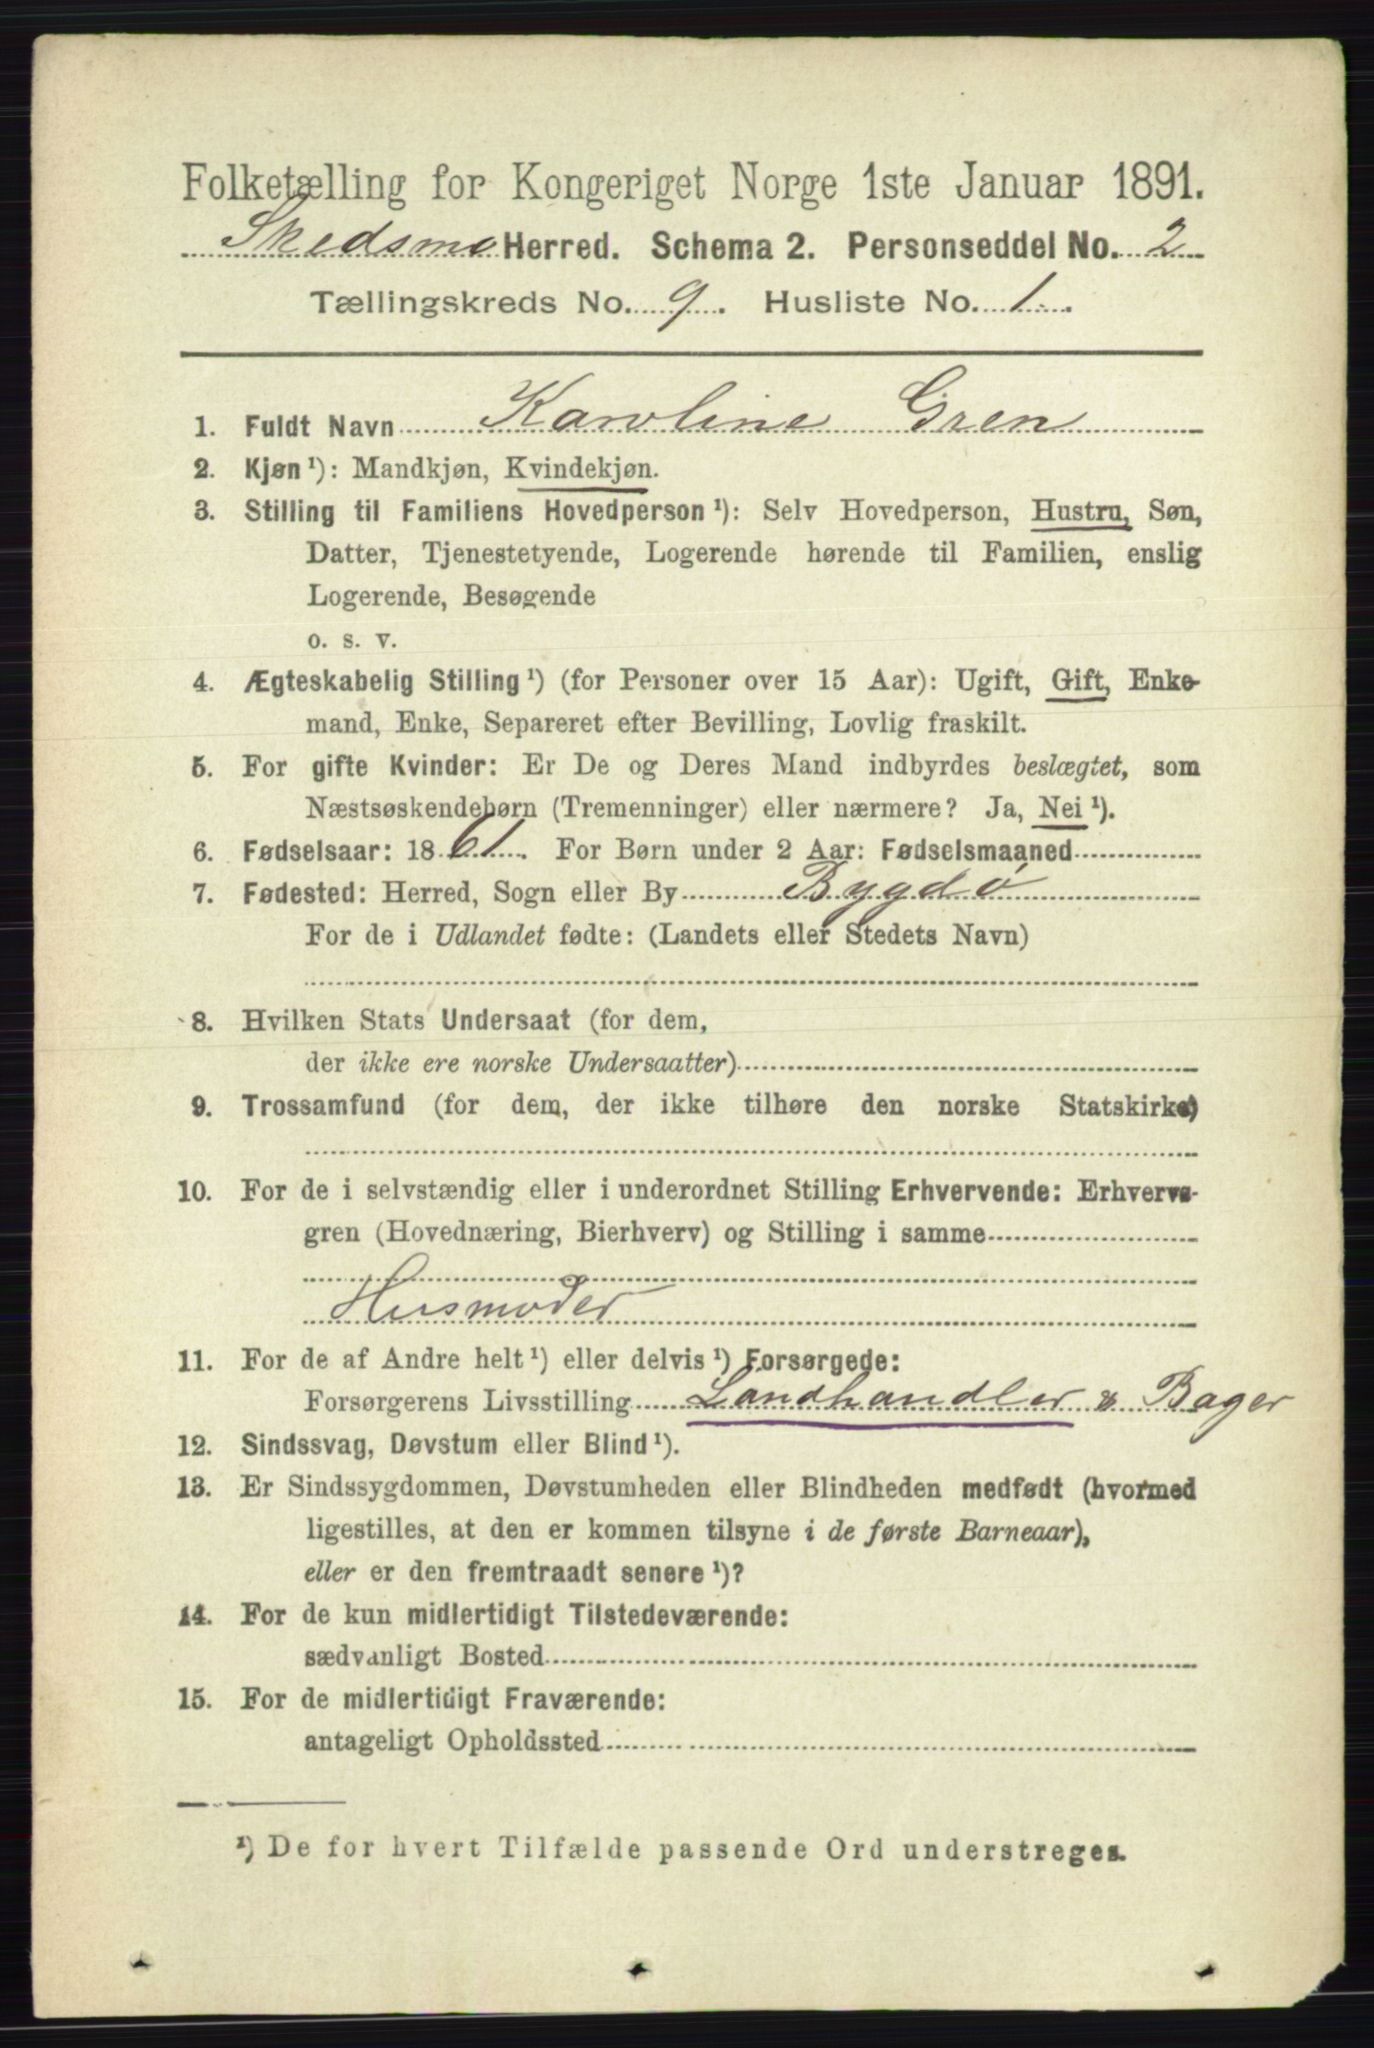 Folketælling for Kongeriget Norge 1ste Januar 1891.
Skedsmo Herred. Schema 2. Personseddel No. 2
Tællingskreds No. 9. Husliste No. 1.
1. Fuldt Navn Karoline Gren
2. Kjøn¹): Mandkjøn, Kvindekjøn.
3. Stilling til Familiens Hovedperson¹): Selv Hovedperson, Hustru, Søn,
Datter, Tjenestetyende, Logerende hørende til Familien, enslig
Logerende, Besøgende
o. s. v.
4. Ægteskabelig Stilling¹) (for Personer over 15 Aar): Ugift, Gift, Enke-
mand, Enke, Separeret efter Bevilling, Lovlig fraskilt.
5. For gifte Kvinder: Er De og Deres Mand indbyrdes beslægtet, som
Næstsøskendebørn (Tremenninger) eller nærmere? Ja, Nei¹).
6. Fødselsaar: 1861. For Børn under 2 Aar: Fødselsmaaned
7. Fødested: Herred, Sogn eller By Bygdø
For de i Udlandet fødte: (Landets eller Stedets Navn)
8. Hvilken Stats Undersaat (for dem,
der ikke ere norske Undersaatter)
9. Trossamfund (for dem, der ikke tilhøre den norske Statskirke)
10. For de i selvstændig eller i underordnet Stilling Erhvervende: Erhvervs-
gren (Hovednæring, Bierhverv) og Stilling i samme
Husmoder
11. For de af Andre helt¹) eller delvis¹) Forsørgede:
Forsørgerens Livsstilling Landhandler & Bager
12. Sindssvag, Døvstum eller Blind¹).
13. Er Sindssygdommen, Døvstumheden eller Blindheden medfødt (hvormed
ligestilles, at den er kommen tilsyne i de første Barneaar),
eller er den fremtraadt senere¹)?
14. For de kun midlertidigt Tilstedeværende:
sædvanligt Bosted
15. For de midlertidigt Fraværende:
antageligt Opholdssted
¹) De for hvert Tilfælde passende Ord understreges.